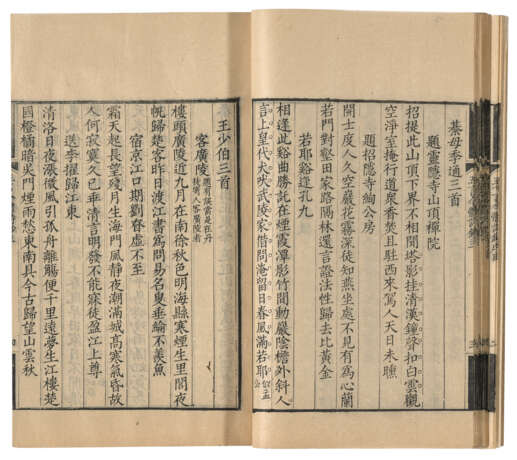 綦毋季通三首
題靈隱寺山頂禪院
招提此山頂下界不相聞塔影挂清漢鐘聲扣白雲觀
空淨室掩行道衆香焚且駐西來駕人天日未曛
題招隱寺絢公房
開士度人久空巖花霧深徒知燕坐處不見有為心蘭
若門對壑田家路隔林還言證法性歸去比黃金
若耶谿逢孔九
相逢此谿曲勝託在煙霞潭影竹間動巖陰檐外斜人
言上皇代犬吠武陵家借問淹留日春風滿若耶
王少伯三首
客廣陵題有誤當是在丹
樓頭廣陵近九月在南徐秋色明海縣寒煙生里閭夜
帆歸楚客昨日渡江書為問易名叟垂綸不羨魚
宿京江口期劉眘虛不至
霜天起長望殘月生海門風靜夜潮滿城高寒氣昏故
人何寂寞久已乖清言明發不能寐徒盈江上尊
送李擢歸江東
清洛日夜漲微風引孤舟離觴便千里遠夢生江樓楚
國橙橘暗吳門煙雨愁東南具今古歸望山雲秋